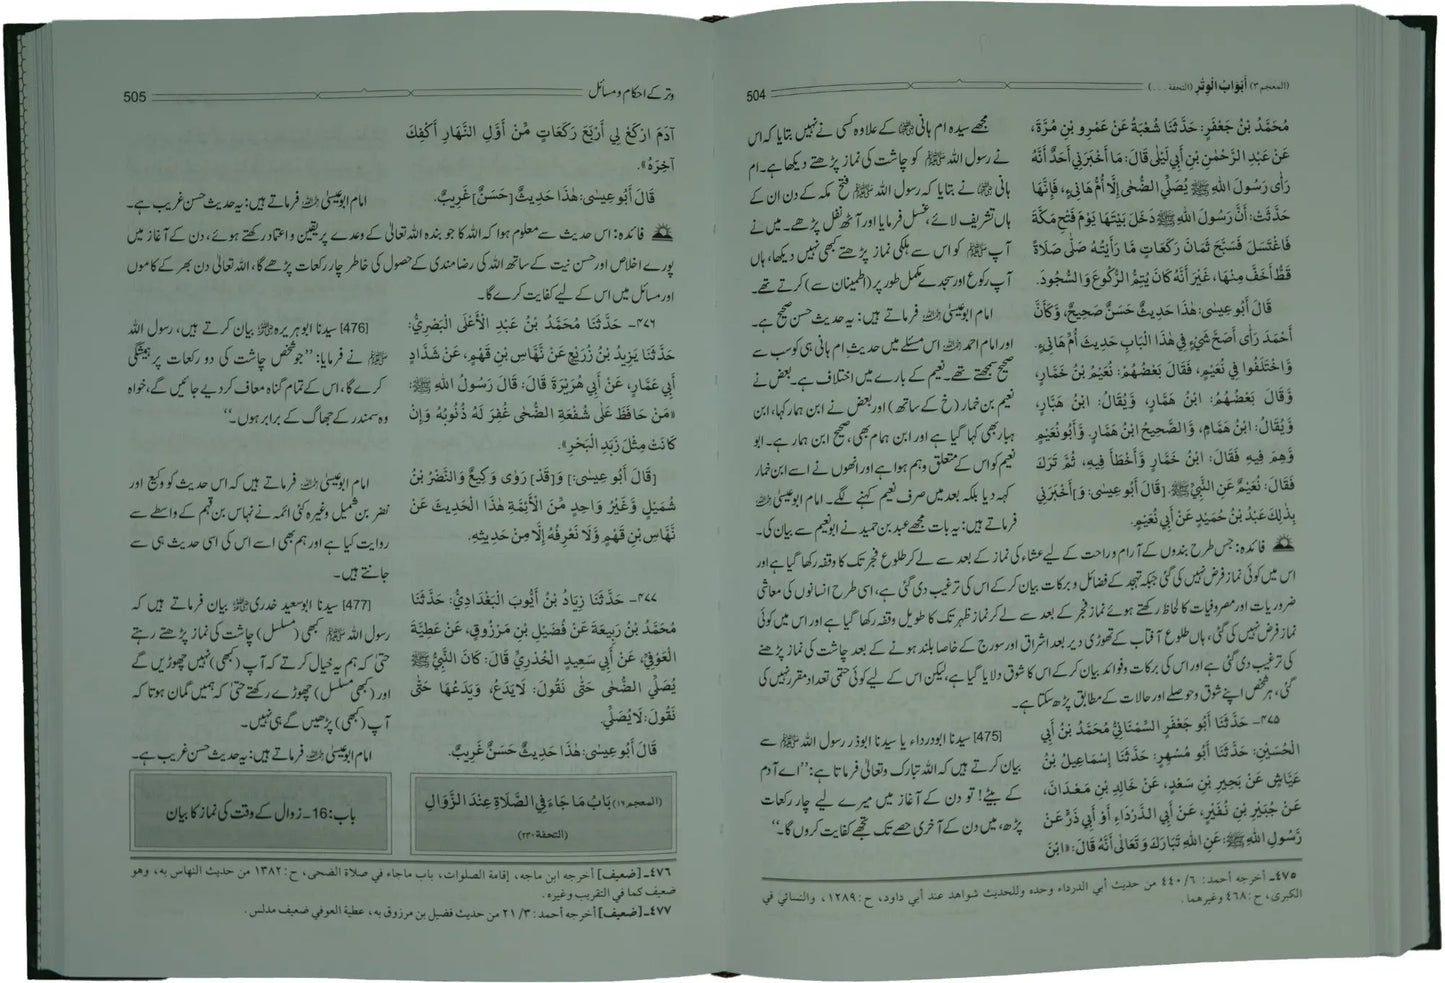 (المعجم ۳) أَبْوَابُ الْوِتْرِ (التحفة . . .)
504
مُحَمَّدُ بْنُ جَعْفَرٍ: حَدَّثَنَا شُعْبَةُ عَنْ عَمْرِو بْنِ مُرَّةَ،
عَنْ عَبْدِ الرَّحْمٰنِ بْنِ أَبِي لَيْلٰى قَالَ: مَا أَخْبَرَنِي أَحَدٌ أَنَّهُ
رَأَى رَسُولَ اللهِ ﷺ يُصَلِّي الضُّحٰى إِلَّا أُمُّ هَانِىءٍ، فَإِنَّهَا
حَدَّثَتْ: أَنَّ رَسُولَ اللهِ ﷺ دَخَلَ بَيْتَهَا يَوْمَ فَتْحِ مَكَّةَ
فَاغْتَسَلَ فَسَبَّحَ ثَمَانَ رَكَعَاتٍ مَّا رَأَيْتُهُ صَلّٰى صَلَاةً
قَطُّ أَخَفَّ مِنْهَا، غَيْرَ أَنَّهُ كَانَ يُتِمُّ الرُّكُوعَ وَالسُّجُودَ.
قَالَ أَبُو عِيسٰى: هٰذَا حَدِيثٌ حَسَنٌ صَحِيحٌ، وَكَأَنَّ
أَحْمَدَ رَأَى أَصَحَّ شَيْءٍ فِي هٰذَا الْبَابِ حَدِيثَ أُمِّ هَانِىءٍ.
وَاخْتَلَفُوا فِي نُعَيْمٍ، فَقَالَ بَعْضُهُمْ: نُعَيْمُ بْنُ خَمَّارٍ،
وَقَالَ بَعْضُهُمْ: ابْنُ هَمَّارٍ، وَيُقَالُ: ابْنُ هَبَّارٍ،
وَيُقَالُ: ابْنُ هَمَّامٍ، وَالصَّحِيحُ ابْنُ هَمَّارٍ. وَأَبُو نُعَيْمٍ
وَهِمَ فِيهِ فَقَالَ: ابْنُ خَمَّارٍ وَأَخْطَأَ فِيهِ، ثُمَّ تَرَكَ
فَقَالَ: نُعَيْمٌ عَنِ النَّبِيِّ ﷺ. [قَالَ أَبُو عِيسٰى: وَ]أَخْبَرَنِي
بِذٰلِكَ عَبْدُ بْنُ حُمَيْدٍ عَنْ أَبِي نُعَيْمٍ.
مجھے سیدہ ام ہانی ؓ کے علاوہ کسی نے نہیں بتایا کہ اس
نے رسول اللہ ﷺ کو چاشت کی نماز پڑھتے دیکھا ہے۔ ام
ہانی ؓ نے بتایا کہ رسول اللہ ﷺ فتح مکہ کے دن ان کے
ہاں تشریف لائے، غسل فرمایا اور آٹھ نفل پڑھے۔ میں نے
آپ ﷺ کو اس سے ہلکی نماز پڑھتے کبھی نہیں دیکھا، ہاں
آپ رکوع اور سجدے مکمل طور پر (اطمینان سے) کرتے تھے۔
امام ابوعیسیٰ ؒ فرماتے ہیں: یہ حدیث حسن صحیح ہے۔
اور امام احمد ؒ اس مسئلے میں حدیثِ ام ہانی ہی کو سب سے
صحیح سمجھتے تھے۔ نعیم کے بارے میں اختلاف ہے۔ بعض نے
نعیم بن خمار (خ کے ساتھ) اور بعض نے ابن ہمار کہا، ابن
ہبار بھی کہا گیا ہے اور ابن ہمام بھی، صحیح ابن ہمار ہے۔ ابو
نعیم کو اس کے متعلق وہم ہوا ہے اور انھوں نے اسے ابن خمار
کہہ دیا بلکہ بعد میں صرف نعیم کہنے لگے۔ امام ابوعیسیٰ ؒ
فرماتے ہیں: یہ بات مجھے عبد بن حمید نے ابونعیم سے بیان کی۔
فائدہ: جس طرح بندوں کے آرام و راحت کے لیے عشاء کی نماز کے بعد سے لے کر طلوع فجر تک کا وقفہ رکھا گیا ہے اور
اس میں کوئی نماز فرض نہیں کی گئی جبکہ تہجد کے فضائل و برکات بیان کر کے اس کی ترغیب دی گئی ہے، اسی طرح انسانوں کی معاشی
ضروریات اور مصروفیات کا لحاظ رکھتے ہوئے نماز فجر کے بعد سے لے کر نماز ظہر تک کا طویل وقفہ رکھا گیا ہے اور اس میں کوئی
نماز فرض نہیں کی گئی، ہاں طلوع آفتاب کے تھوڑی دیر بعد اشراق اور سورج کے خاصا بلند ہونے کے بعد چاشت کی نماز پڑھنے
کی ترغیب دی گئی ہے اور اس کی برکات و فوائد بیان کر کے اس کا شوق دلایا گیا ہے، لیکن اس کے لیے کوئی حتمی تعداد مقرر نہیں کی
گئی، ہر شخص اپنے شوق و حوصلے اور حالات کے مطابق پڑھ سکتا ہے۔
٤٧٥- حَدَّثَنَا أَبُو جَعْفَرٍ السِّمْنَانِيُّ مُحَمَّدُ بْنُ أَبِي
الْحُسَيْنِ: حَدَّثَنَا أَبُو مُسْهِرٍ: حَدَّثَنَا إِسْمَاعِيلُ بْنُ
عَيَّاشٍ عَنْ بَحِيرِ بْنِ سَعْدٍ، عَنْ خَالِدِ بْنِ مَعْدَانَ،
عَنْ جُبَيْرِ بْنِ نُفَيْرٍ، عَنْ أَبِي الدَّرْدَاءِ أَوْ أَبِي ذَرٍّ عَنْ
رَسُولِ اللهِ ﷺ: عَنِ اللهِ تَبَارَكَ وَتَعَالٰى أَنَّهُ قَالَ: «ابْنَ
[475] سیدنا ابودرداء یا سیدنا ابوذر رسول اللہ ﷺ سے
بیان کرتے ہیں کہ اللہ تبارک وتعالیٰ فرماتا ہے: ’’اے آدم
کے بیٹے! تو دن کے آغاز میں میرے لیے چار رکعات
پڑھ، میں دن کے آخری حصے تک تجھے کفایت کروں گا۔‘‘
٤٧٥- أخرجه أحمد: ٦/ ٤٤٠ من حديث أبي الدرداء وحده وللحديث شواهد عند أبي داود، ح: ١٢٨٩، والنسائي في
الكبرى، ح: ٤٦٨ وغيرهما.
وتر کے احکام و مسائل
505
آدَمَ ارْكَعْ لِي أَرْبَعَ رَكَعَاتٍ مِّنْ أَوَّلِ النَّهَارِ أَكْفِكَ
آخِرَهُ».
قَالَ أَبُو عِيسٰى: هٰذَا حَدِيثٌ [حَسَنٌ] غَرِيبٌ.
امام ابوعیسیٰ ؒ فرماتے ہیں: یہ حدیث حسن غریب ہے۔
فائدہ: اس حدیث سے معلوم ہوا کہ اللہ کا جو بندہ اللہ تعالیٰ کے وعدے پر یقین و اعتماد رکھتے ہوئے، دن کے آغاز میں
پورے اخلاص اور حسن نیت کے ساتھ اللہ کی رضا مندی کے حصول کی خاطر چار رکعات پڑھے گا، اللہ تعالیٰ دن بھر کے کاموں
اور مسائل میں اس کے لیے کفایت کرے گا۔
٤٧٦- حَدَّثَنَا مُحَمَّدُ بْنُ عَبْدِ الْأَعْلَى الْبَصْرِيُّ:
حَدَّثَنَا يَزِيدُ بْنُ زُرَيْعٍ عَنْ نَهَّاسِ بْنِ قَهْمٍ، عَنْ شَدَّادٍ
أَبِي عَمَّارٍ، عَنْ أَبِي هُرَيْرَةَ قَالَ: قَالَ رَسُولُ اللهِ ﷺ:
«مَنْ حَافَظَ عَلٰى شُفْعَةِ الضُّحٰى غُفِرَ لَهُ ذُنُوبُهُ وَإِنْ
كَانَتْ مِثْلَ زَبَدِ الْبَحْرِ».
[قَالَ أَبُو عِيسٰى:] وَ[قَدْ] رَوٰى وَكِيعٌ وَالنَّضْرُ بْنُ
شُمَيْلٍ وَغَيْرُ وَاحِدٍ مِّنَ الْأَئِمَّةِ هٰذَا الْحَدِيثَ عَنْ
نَهَّاسِ بْنِ قَهْمٍ وَلَا نَعْرِفُهُ إِلَّا مِنْ حَدِيثِهِ.
[476] سیدنا ابوہریرہ ؓ بیان کرتے ہیں، رسول اللہ
ﷺ نے فرمایا: ’’جو شخص چاشت کی دو رکعات پر ہمیشگی
کرے گا، اس کے تمام گناہ معاف کر دیے جائیں گے، خواہ
وہ سمندر کے جھاگ کے برابر ہوں۔‘‘
امام ابوعیسیٰ ؒ فرماتے ہیں کہ اس حدیث کو وکیع اور
نضر بن شمیل وغیرہ کئی ائمہ نے نہاس بن قہم کے واسطے سے
روایت کیا ہے اور ہم بھی اسے اس کی اسی حدیث ہی سے
جانتے ہیں۔
٤٧٧- حَدَّثَنَا زِيَادُ بْنُ أَيُّوبَ الْبَغْدَادِيُّ: حَدَّثَنَا
مُحَمَّدُ بْنُ رَبِيعَةَ عَنْ فُضَيْلِ بْنِ مَرْزُوقٍ، عَنْ عَطِيَّةَ
الْعَوْفِيِّ، عَنْ أَبِي سَعِيدٍ الْخُدْرِيِّ قَالَ: كَانَ النَّبِيُّ ﷺ
يُصَلِّي الضُّحٰى حَتّٰى نَقُولَ: لَا يَدَعُ، وَيَدَعُهَا حَتّٰى
نَقُولَ: لَا يُصَلِّي.
قَالَ أَبُو عِيسٰى: هٰذَا حَدِيثٌ حَسَنٌ غَرِيبٌ.
[477] سیدنا ابوسعید خدری ؓ بیان فرماتے ہیں کہ
رسول اللہ ﷺ کبھی (مسلسل) چاشت کی نماز پڑھتے رہتے
حتیٰ کہ ہم یہ خیال کرتے کہ آپ (کبھی) نہیں چھوڑیں گے
اور (کبھی مسلسل) چھوڑے رکھتے حتیٰ کہ ہمیں گمان ہوتا کہ
آپ (کبھی) پڑھیں گے ہی نہیں۔
امام ابوعیسیٰ ؒ فرماتے ہیں: یہ حدیث حسن غریب ہے۔
(المعجم ١٦) بَابُ مَا جَاءَ فِي الصَّلَاةِ عِنْدَ الزَّوَالِ
(التحفة ٢٣٠)
باب: 16- زوال کے وقت کی نماز کا بیان
٤٧٦- [ضعيف] أخرجه ابن ماجه، إقامة الصلوات، باب ماجاء في صلاة الضحى، ح: ١٣٨٢ من حديث النهاس به، وهو
ضعيف كما في التقريب وغيره.
٤٧٧- [ضعيف] أخرجه أحمد: ٣/ ٢١ من حديث فضيل بن مرزوق به، عطية العوفي ضعيف مدلس.